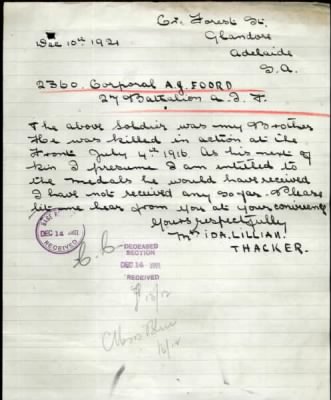 Cr. Forest St.
Dec 10th 1921 Glandore
Adelaide
S. A.
2360. Corporal A.J. FOORD
27 Battalion A. I. F.
The above Soldier was my Brother
He was killed in action at the
Front July 4th 1916. As his next of
kin I presume I am entitled to
the medals he would have received
I have not received any so far. Please
let me hear from you at your convenience
Yours respectfully
Mrs IDA. LILLIAN.
THACKER.
BASE
DEC 14 1921
RECEIVED
DECEASED
SECTION
DEC 14 1921
RECEIVED